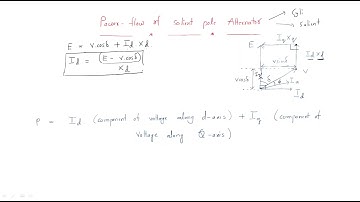 Power-flow of salient pole Alternator
Salient
E = V.cosδ + Id Xd
Id = (E - V.cosδ) / Xd
E
Iq Xq
Id Xd
V.cosδ
V
V.cosδ
δ
Id
P = Id (component of voltage along d-axis) + Iq (component of
voltage along Q-axis)